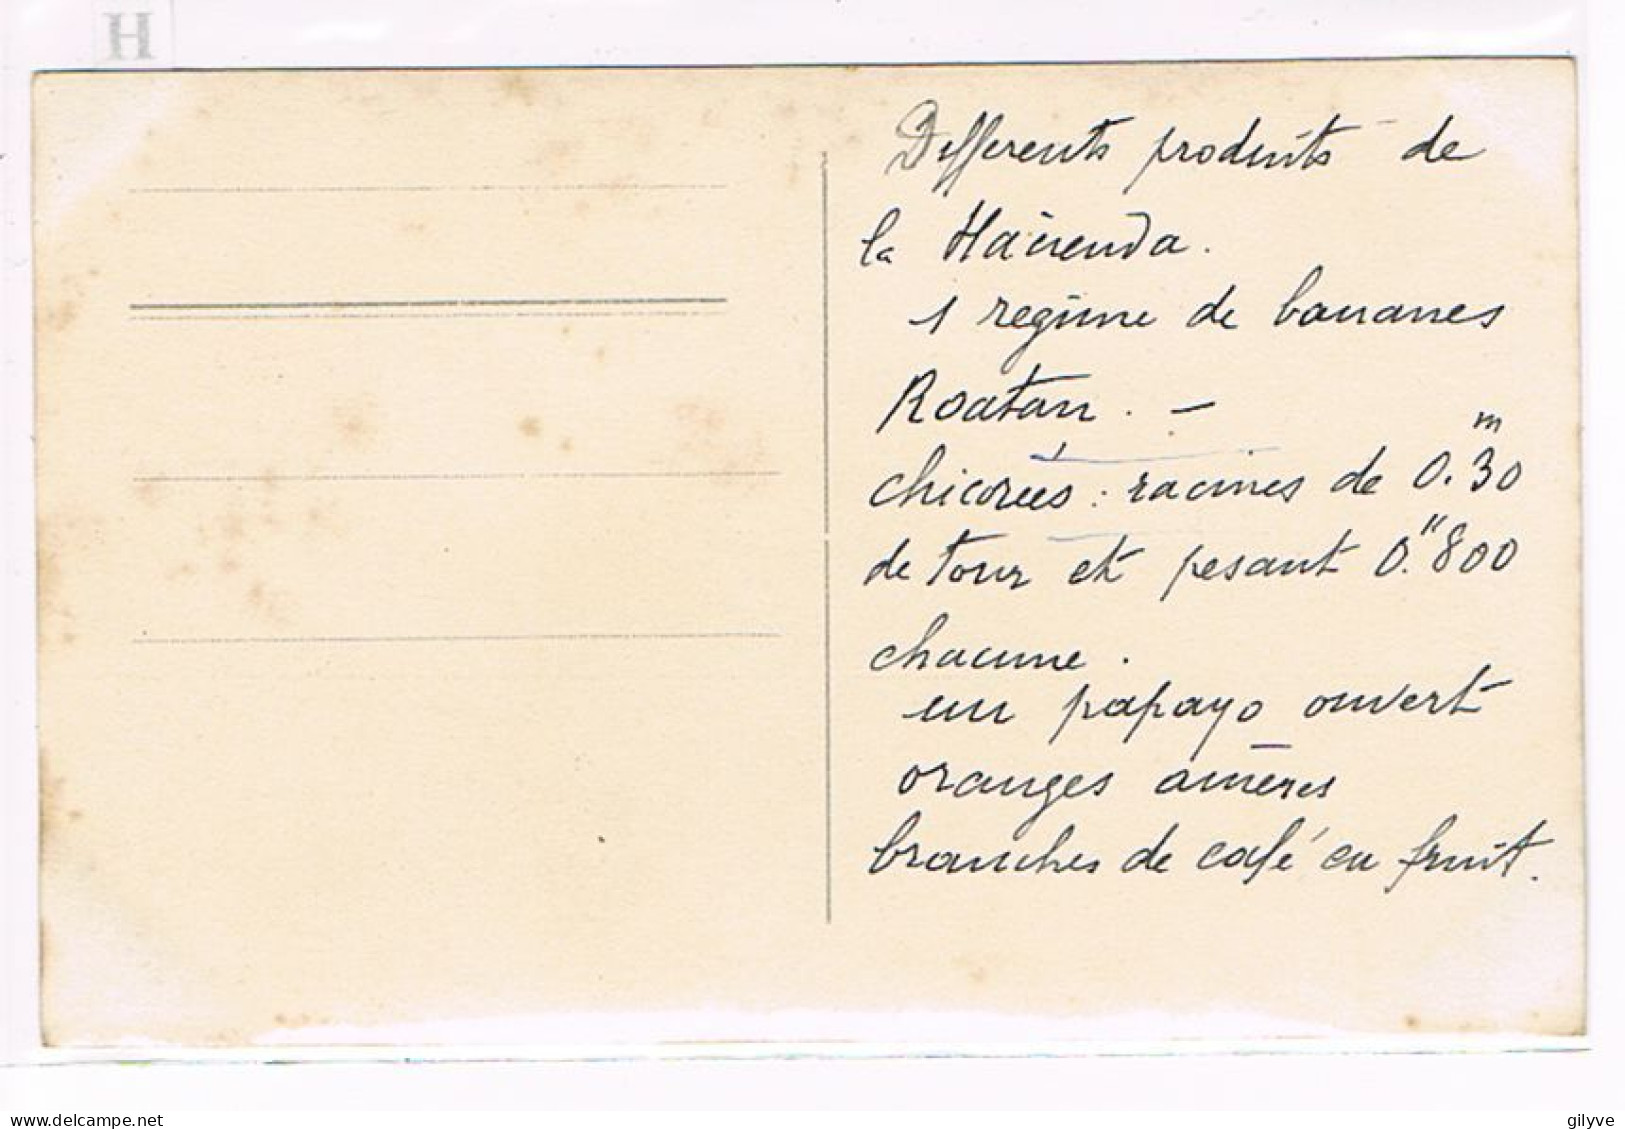 H
Differents produits de
la Hacienda.
1 regime de bananes
Roatan. –
chicorées : racines de 0.m30
de tour et pesant 0."800
chacune.
un papayo ouvert
oranges amères
branches de café en fruit.
delcampe.net
gilyve